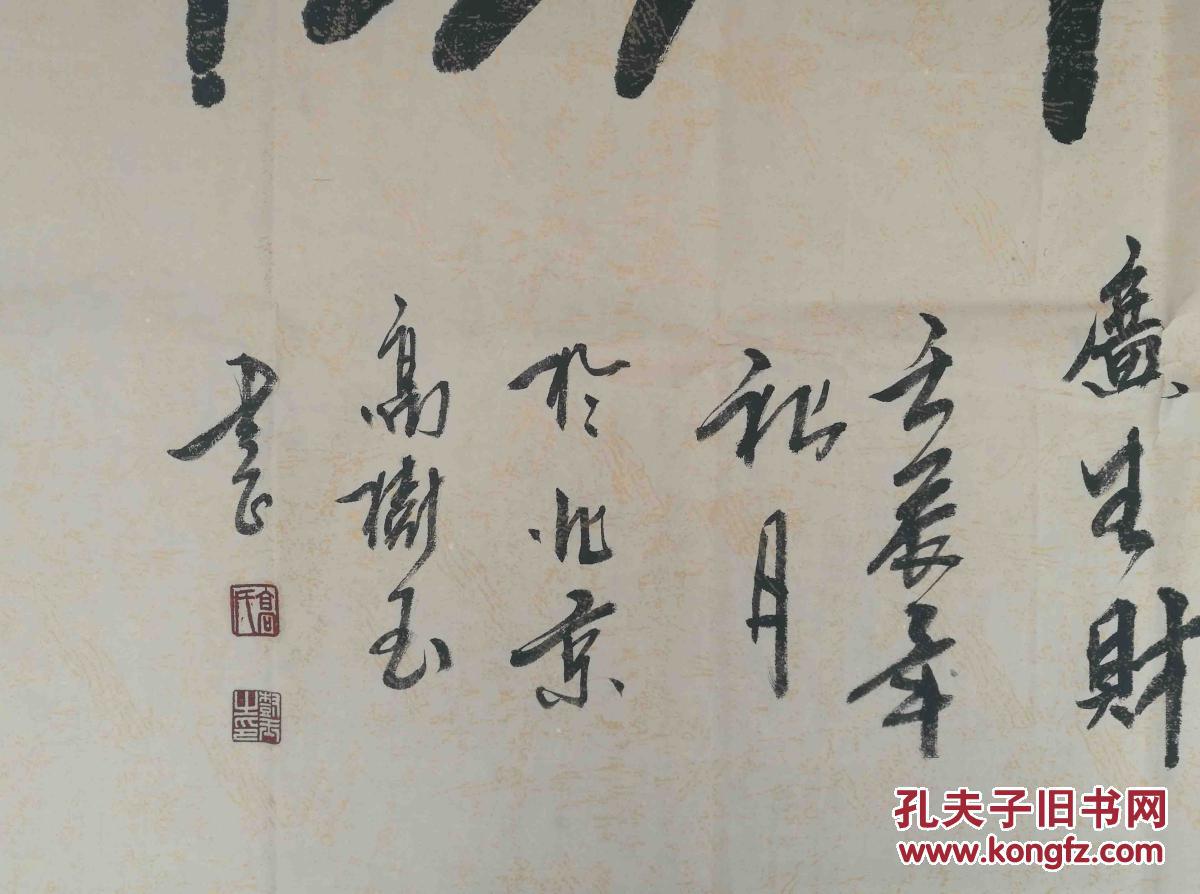 廣生財
壬辰年
秋月
於北京
高樹玉
書
高氏
樹玉之印
孔夫子旧书网
www.kongfz.com